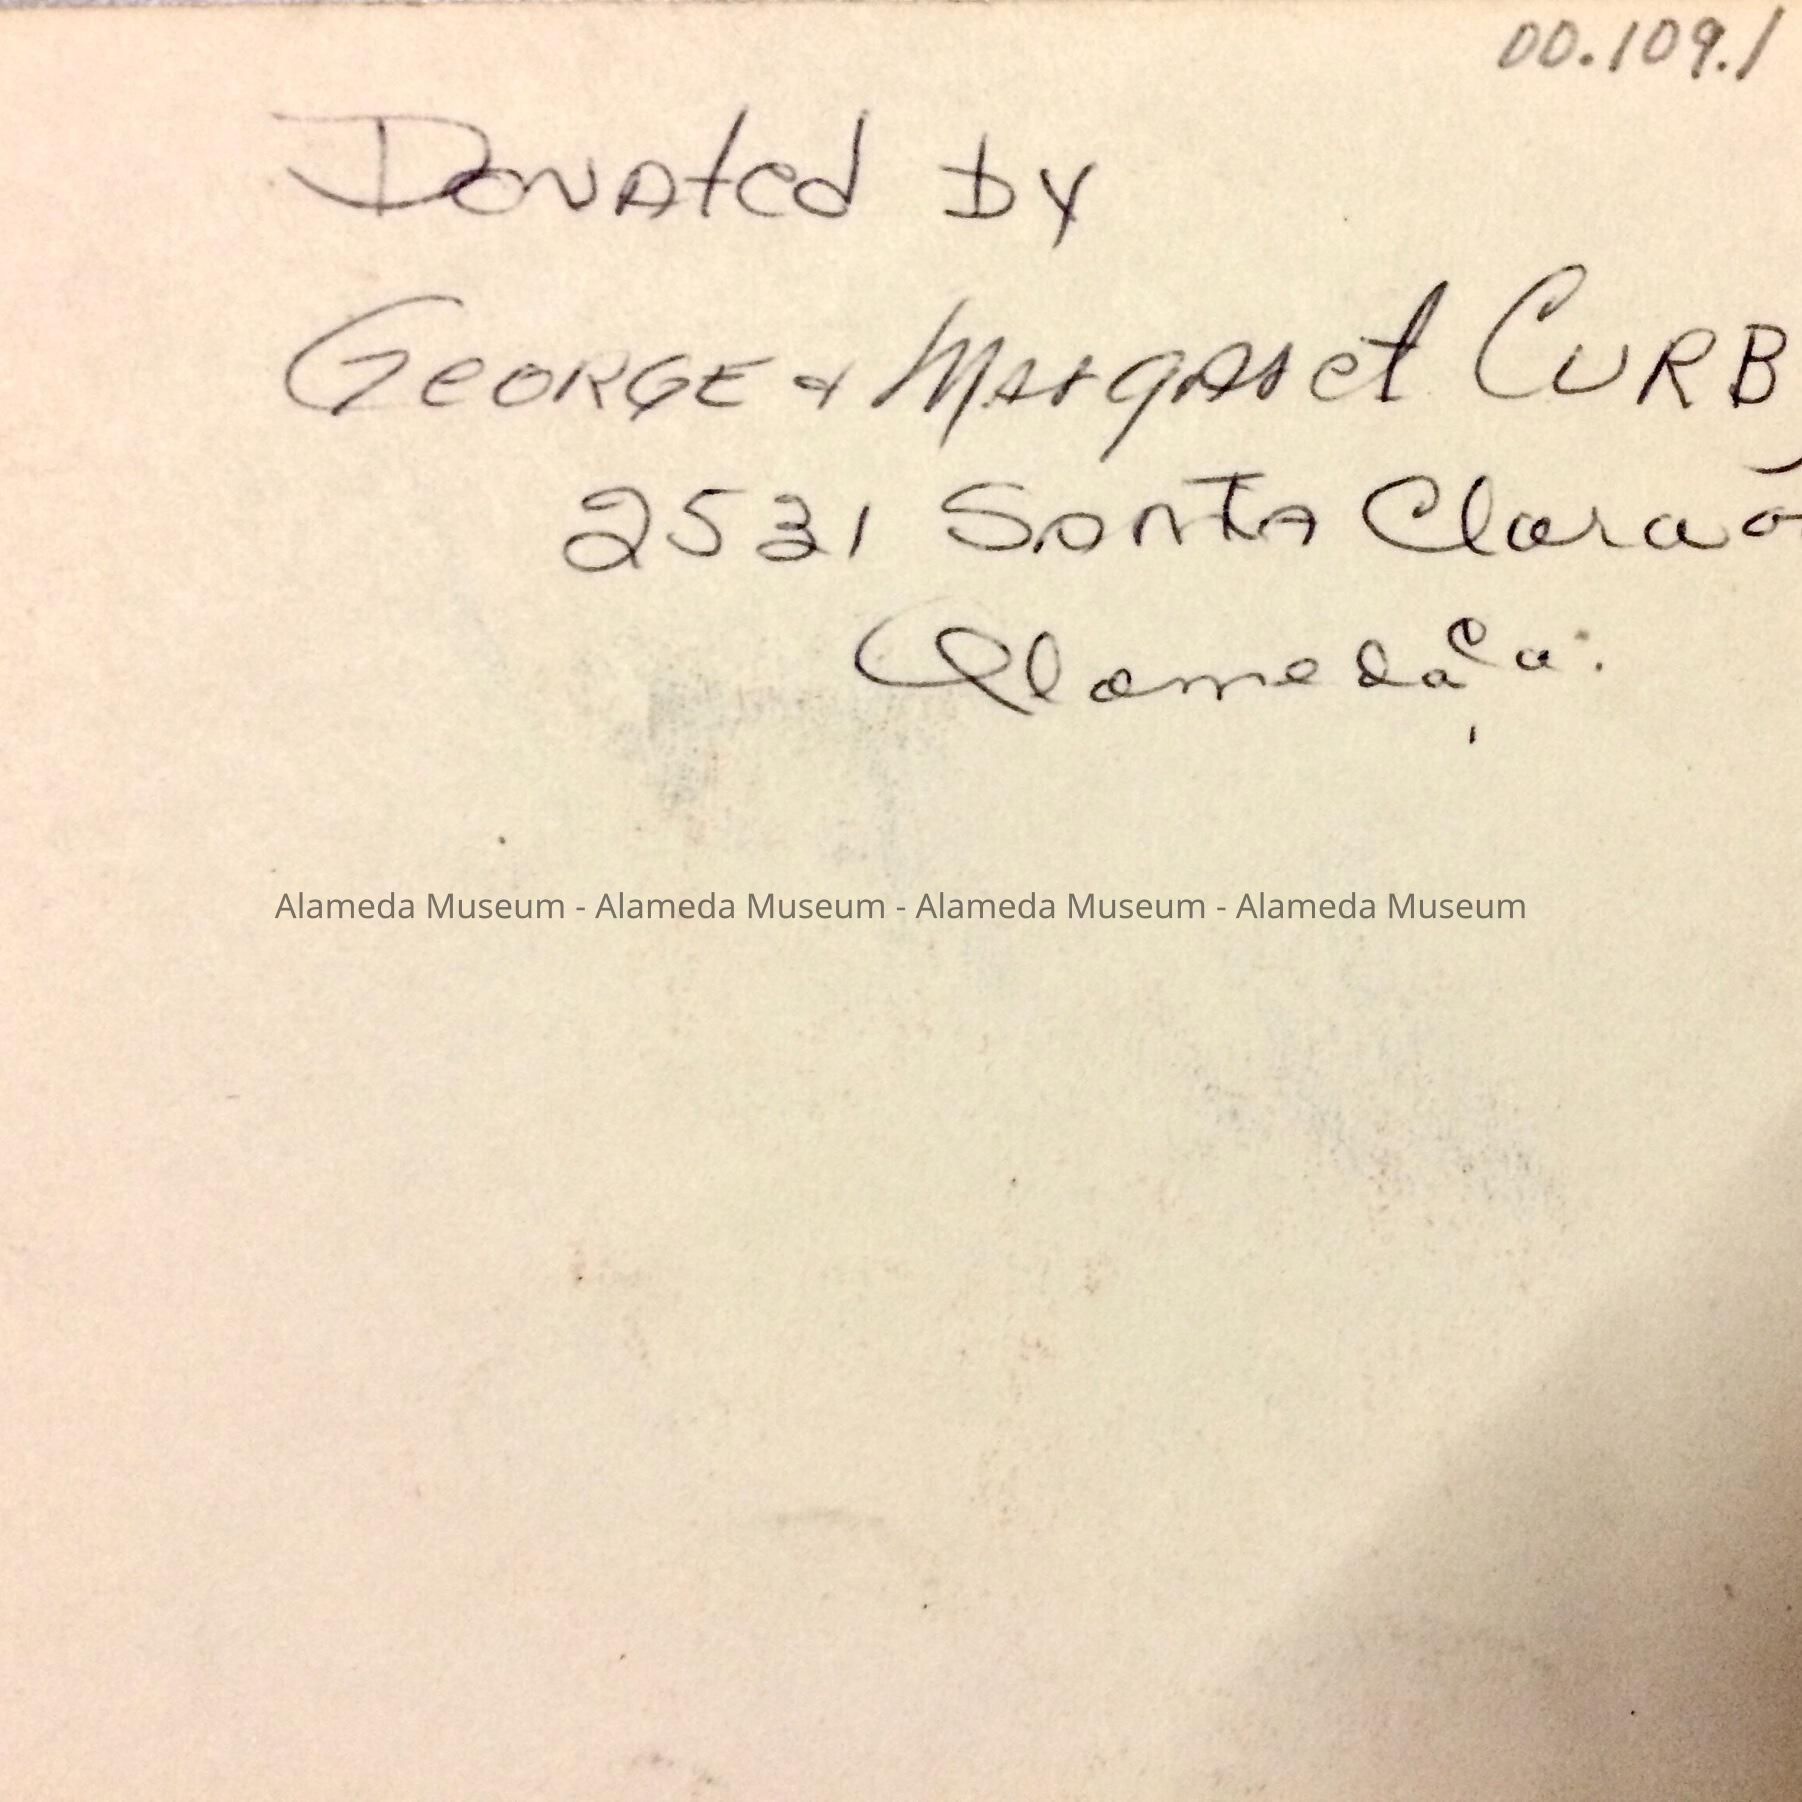 00.109.1
Donated by
George & Margaret Curb
2531 Santa Clara
Alameda, Ca.
Alameda Museum - Alameda Museum - Alameda Museum - Alameda Museum